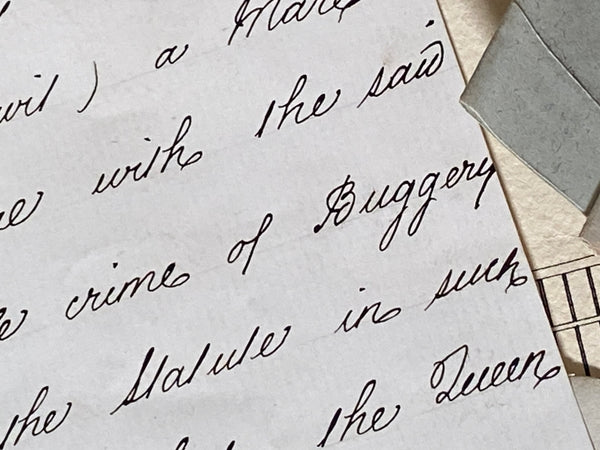 wit) a Mare
with the said
crime of Buggery
the Statute in such
the Queen